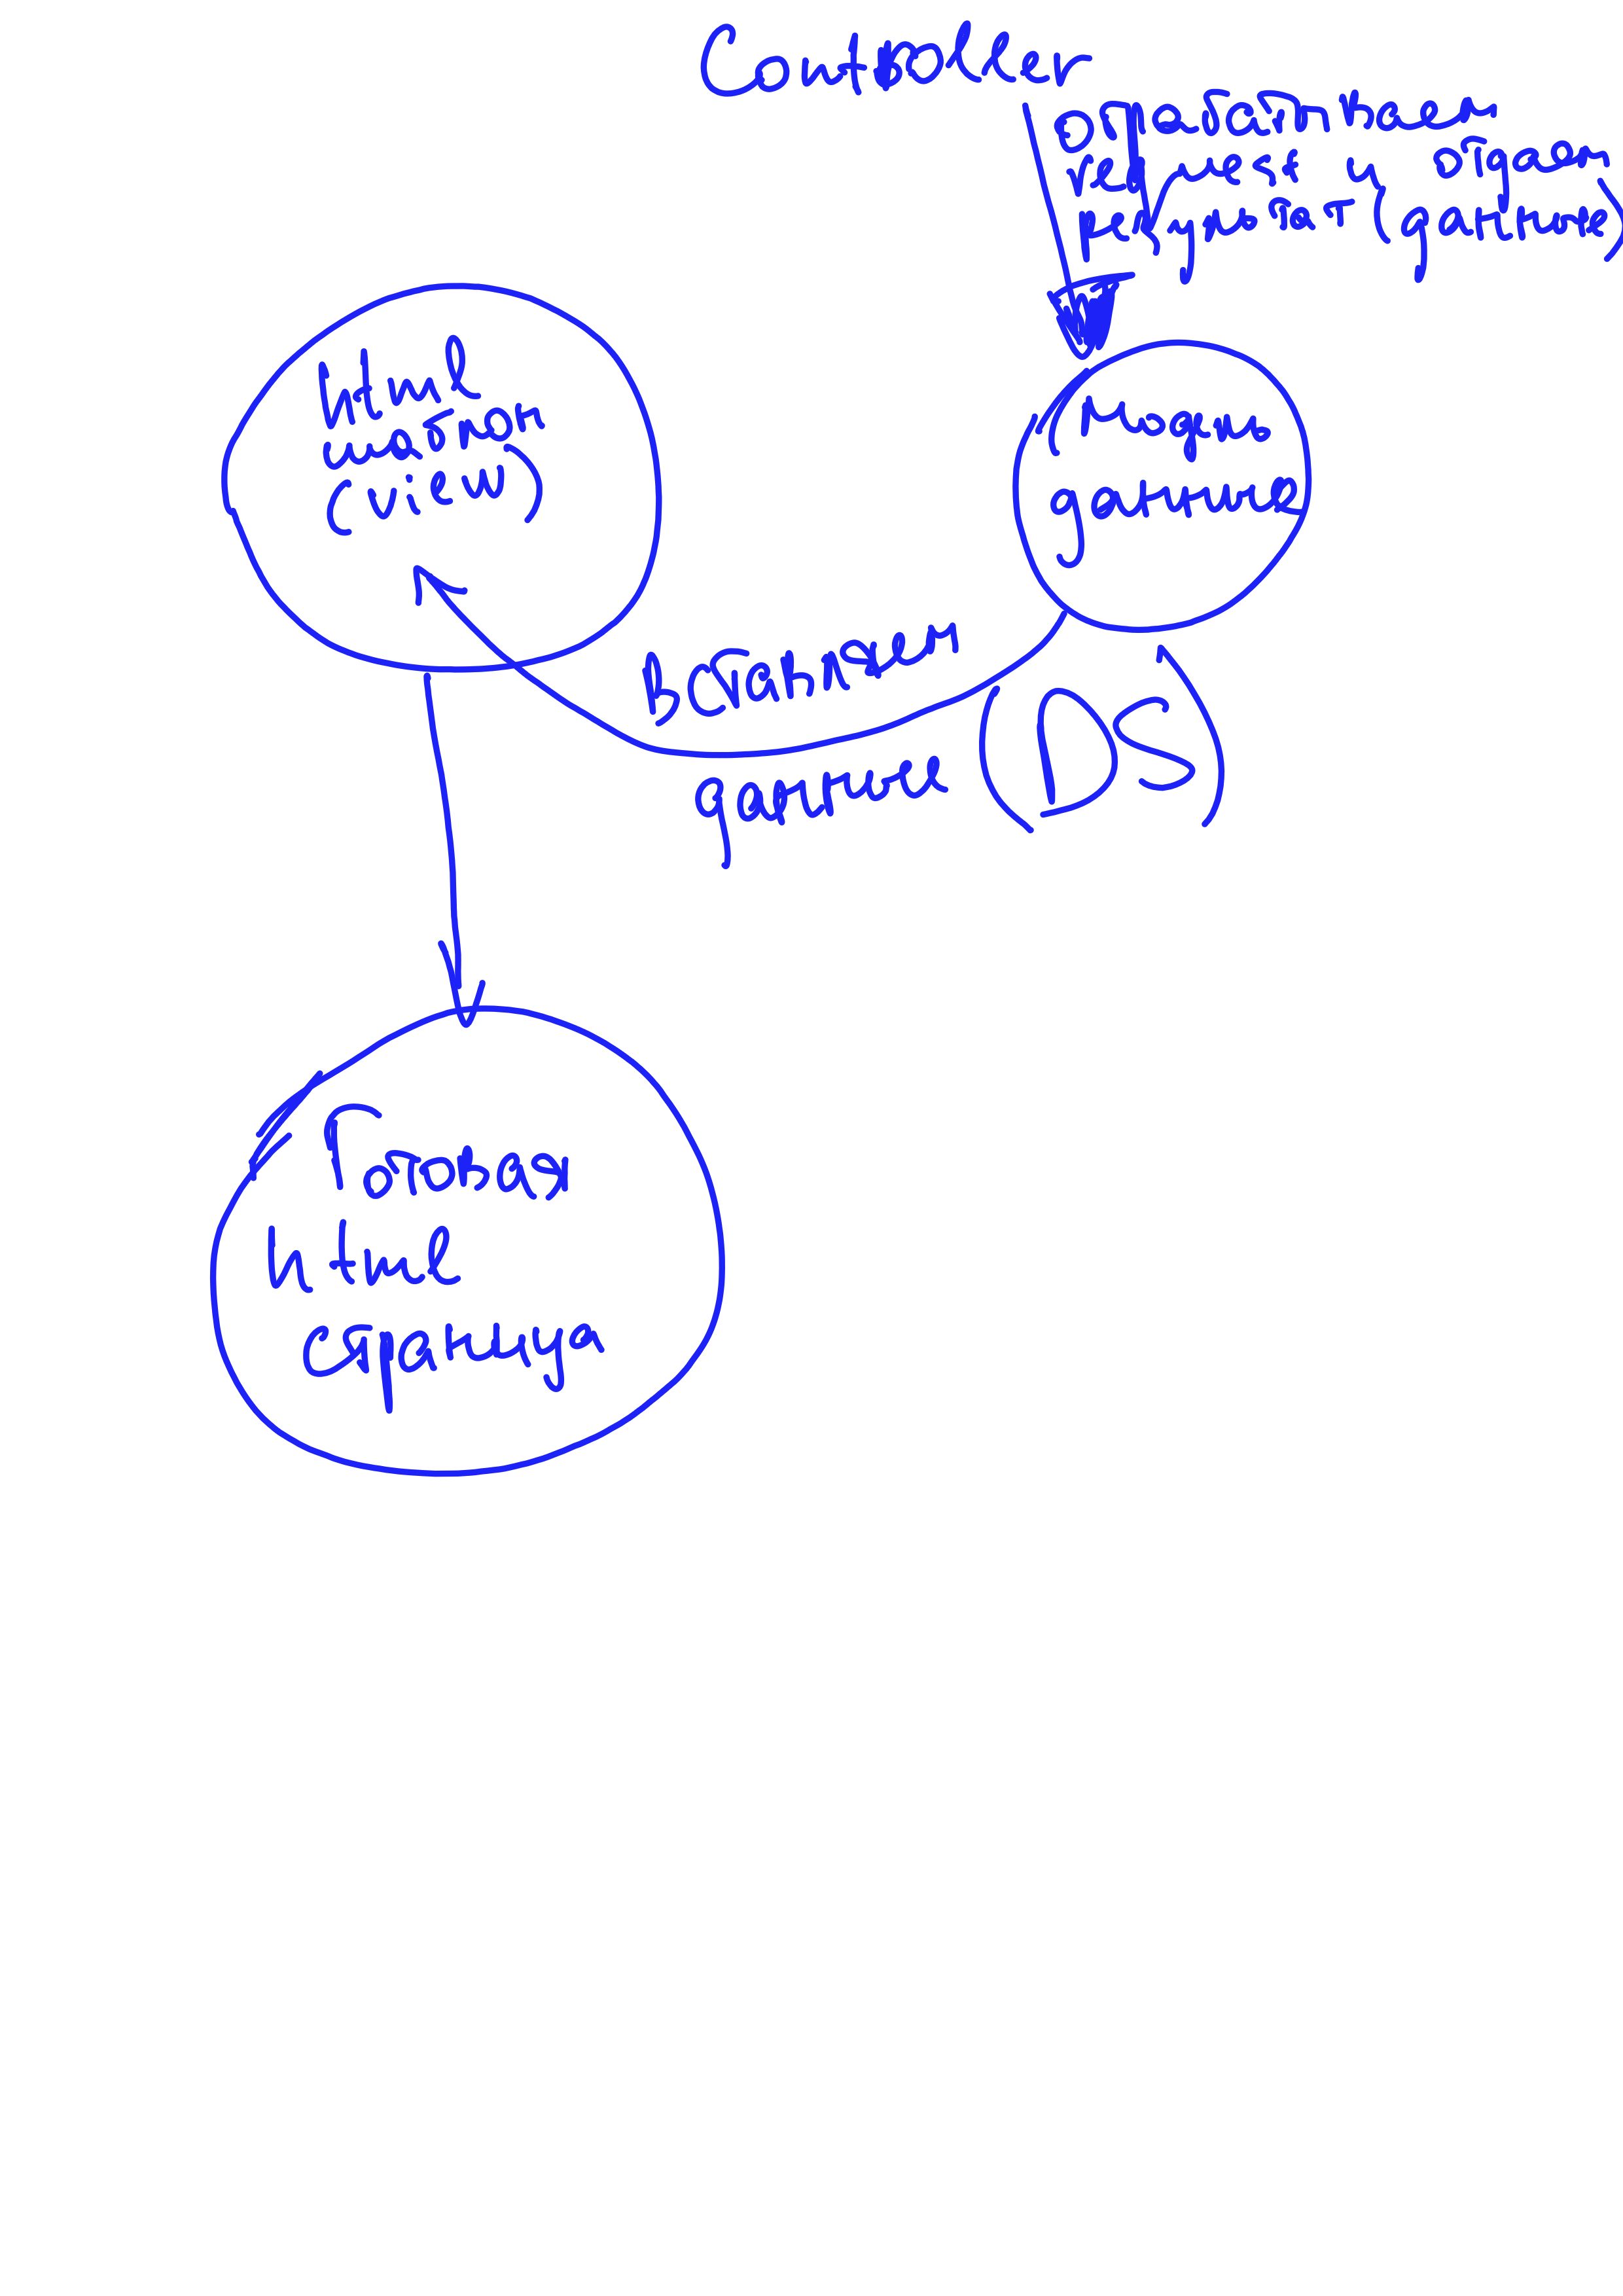 Controller
обрабатываем
request и отдаем
результат (данные)
html
шаблон
(view)
модель
данные
вставляем
данные
(DS)
Готовая
html
страница